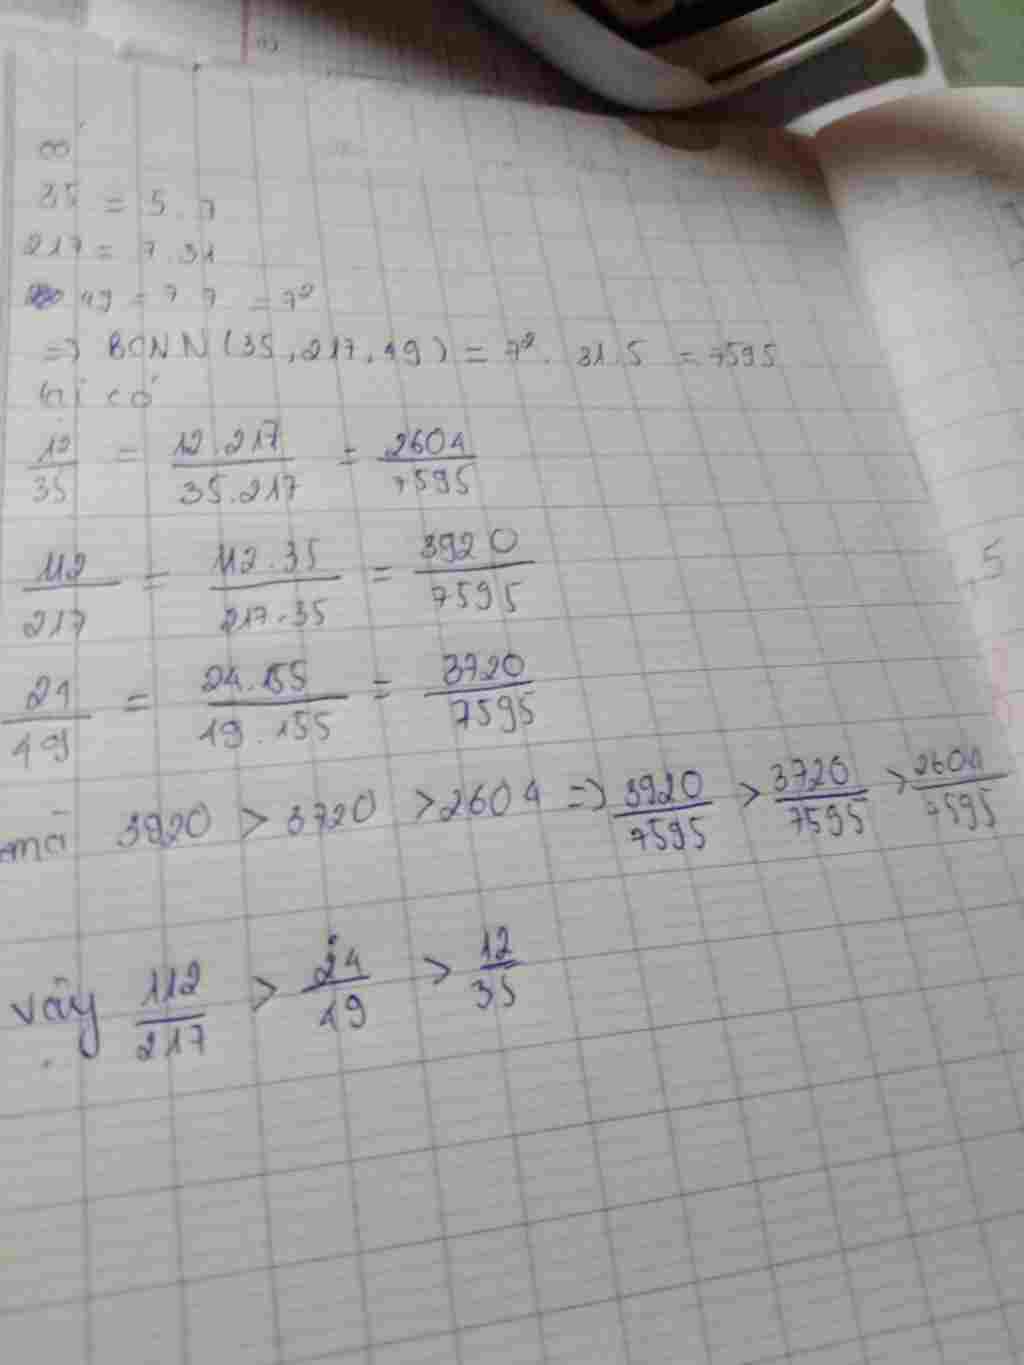 có
35 = 5 . 7
217 = 7 . 31
49 = 7 7 = 7²
=> BCNN (35, 217, 49) = 7² . 31 . 5 = 7595
lại có
12/35 = 12.217/35.217 = 2604/7595
112/217 = 112.35/217.35 = 3920/7595
24/49 = 24.155/49.155 = 3720/7595
mà 3920 > 3720 > 2604 => 3920/7595 > 3720/7595 > 2604/7595
vậy 112/217 > 24/49 > 12/35
5